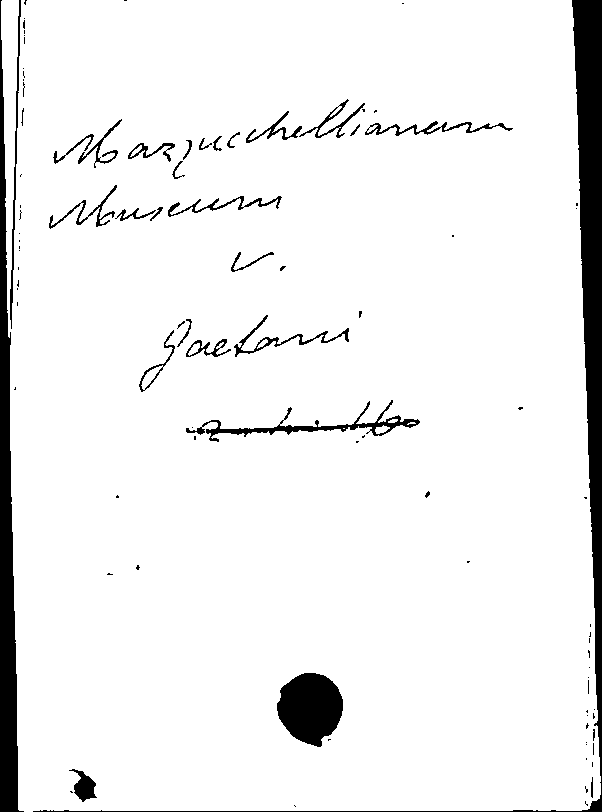 Mazzucchellianum
Museum
v.
Gaetani